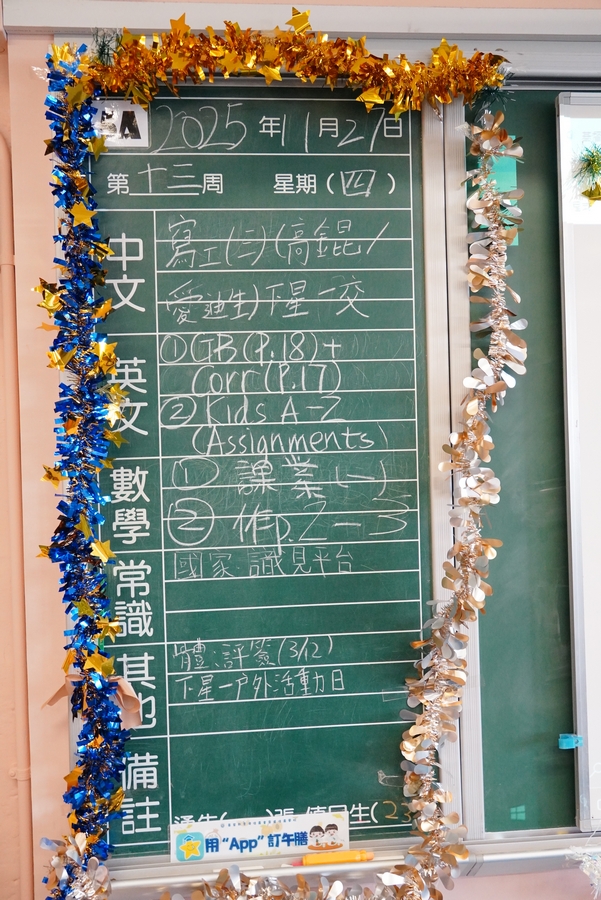 2025年11月27日
第十三周 星期(四)
中文
寫工(二)(高錕/
愛迪生)下星一交
英文
①GB(P.18)+
Corr(P.17)
②Kids A-Z
(Assignments)
數學
① 課業(一)
② 作p.2-3
常識
國家 識見平台
其他
體:評簽(3/12)
下星一户外活動日
備註
張 值日生(23
用“App”訂午膳